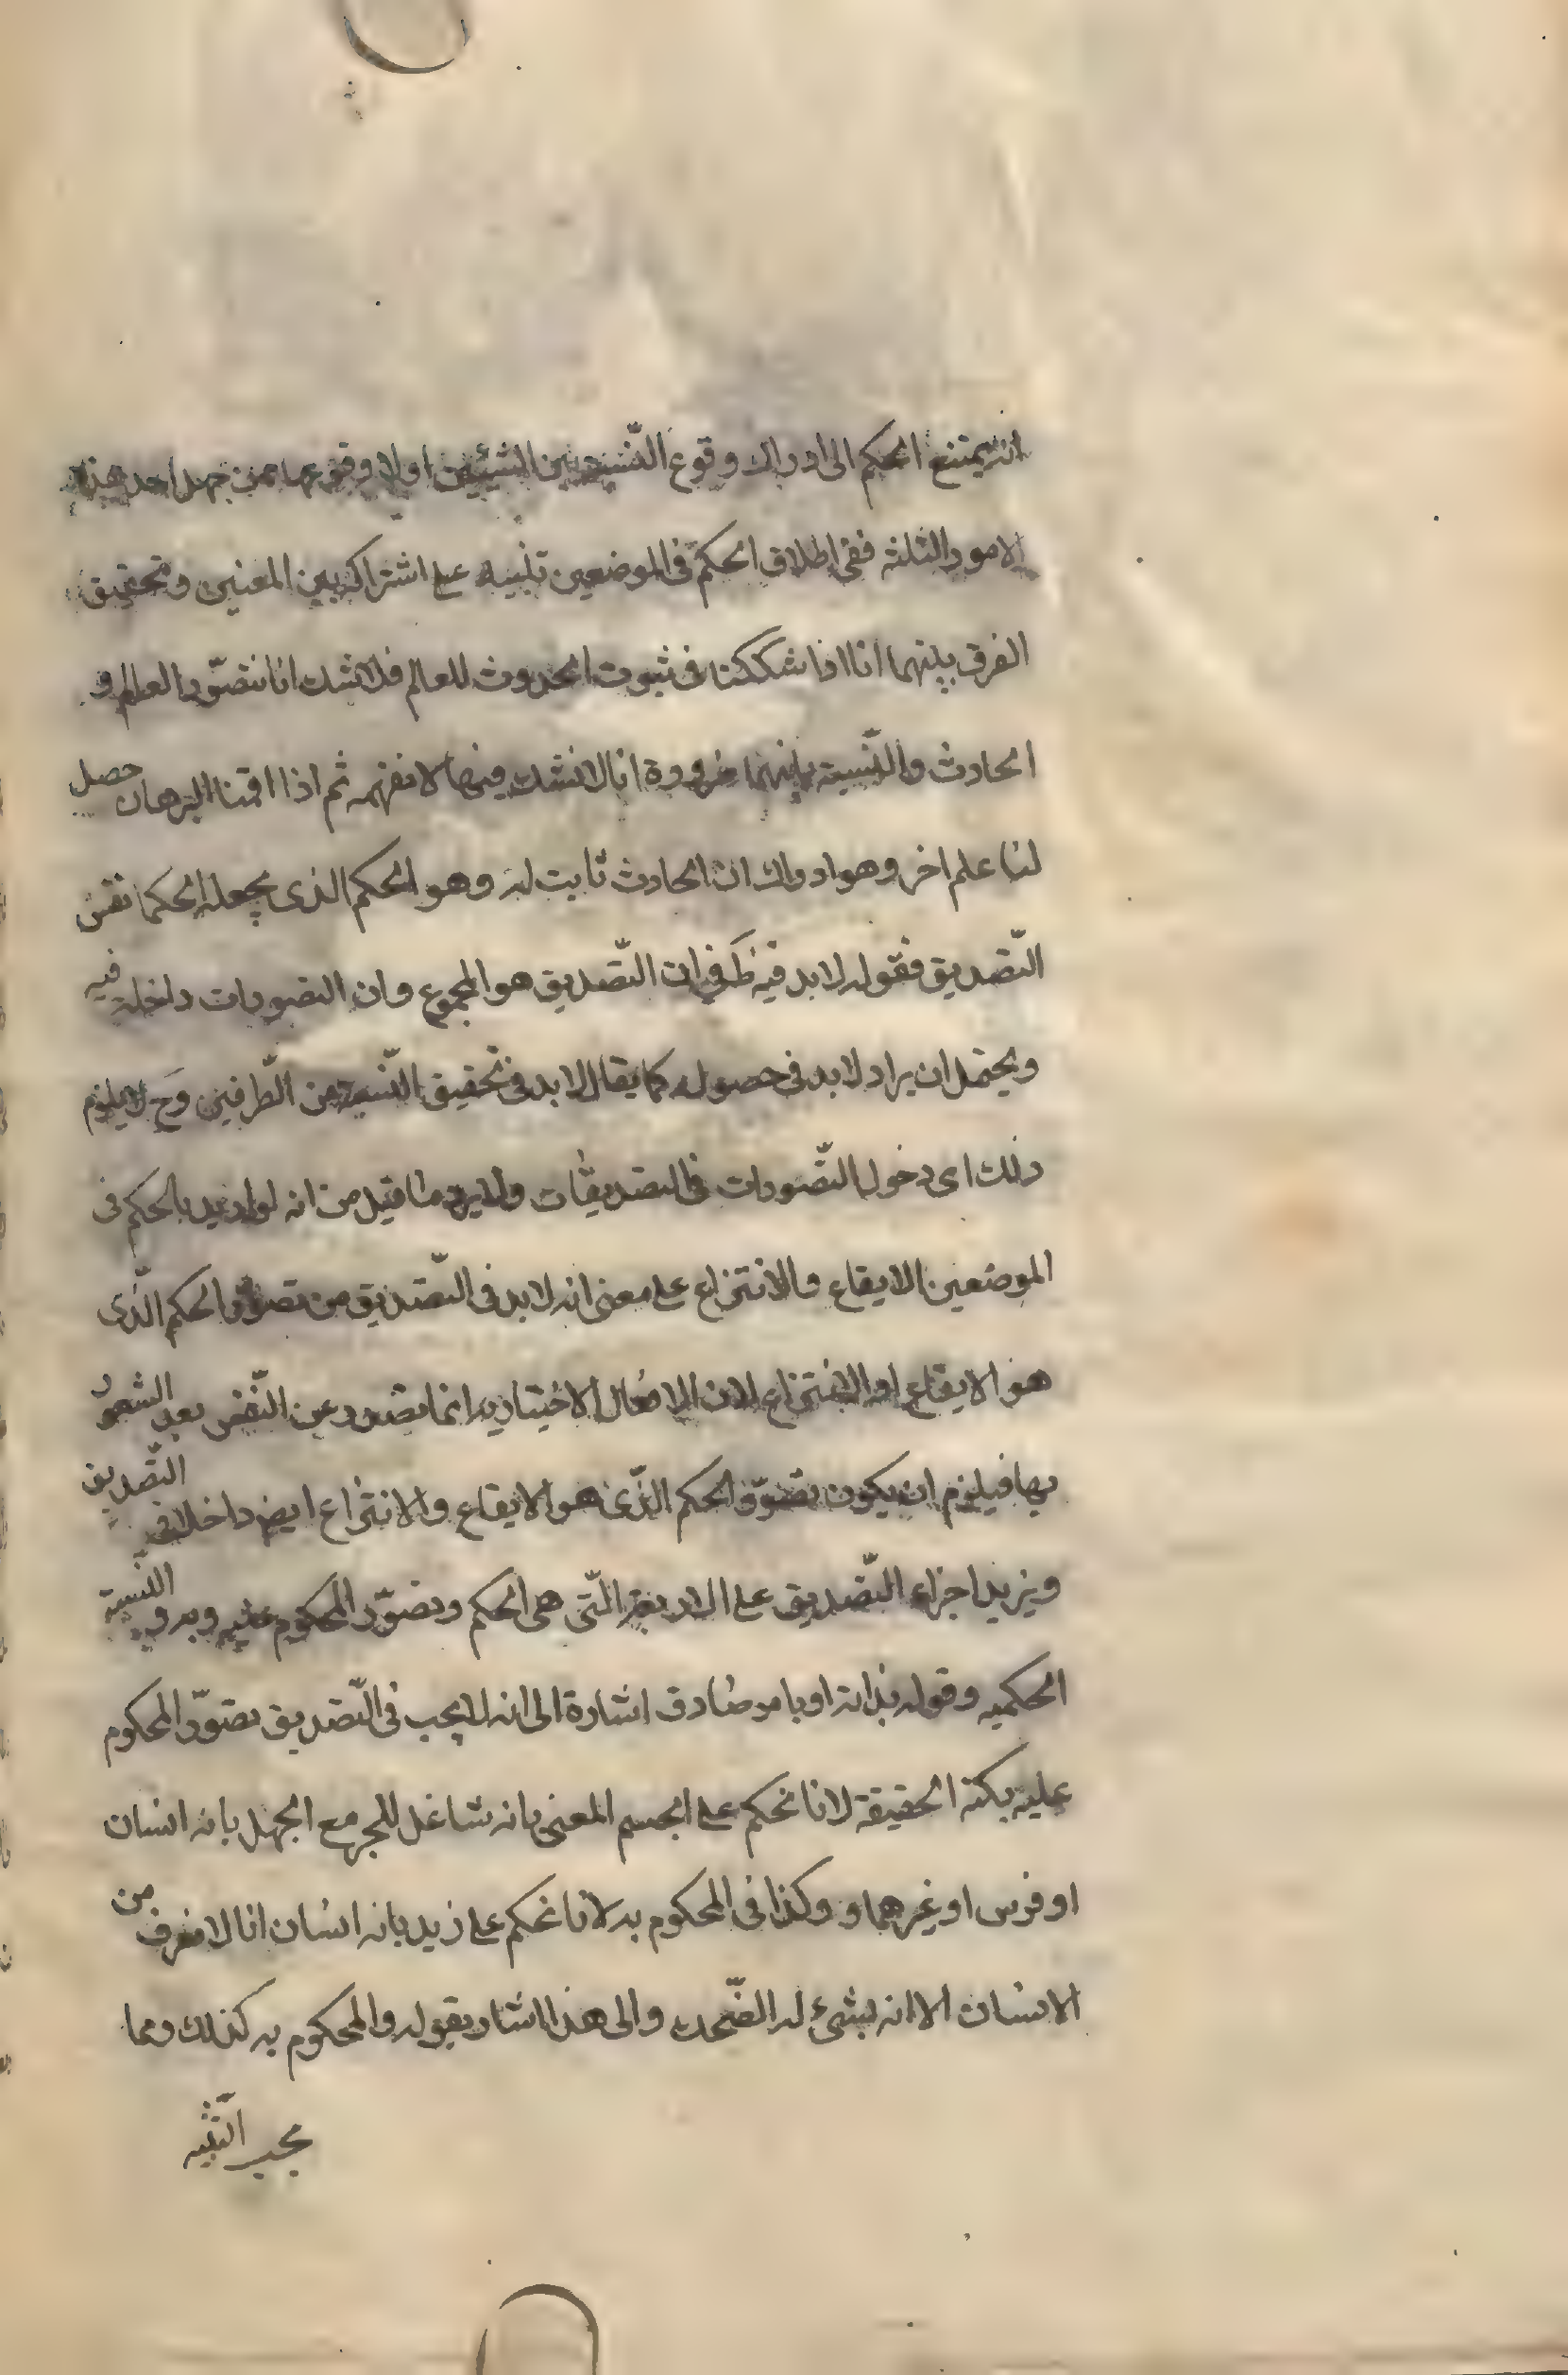 انه يمتنع الحكم الى ادراك وقوع النّسبة بين الشيئين اولا وقوعها ممن جهل احد هذه
الامور الثلثه ففى اطلاق الحكم فى الموضعين تنبيه على اشتراكه بين المعنيين وتحقيق
الفرق بينهما انا اذا شككنا فى ثبوت الحدوث للعالم فلا شك انا نتصّور العالم و
الحادث والنّسبة بينهما ضرورة انا لا نشك فيما لا نفهمه ثم اذا اقمنا البرهان حصل
لنا علم اخر وهو ادراك ان الحادث ثابت له وهو الحكم الذى يجعله الحكما نفس
التّصديق فقوله لابد فيه ظ فى ان التّصديق هو المجموع وان التصورات داخلة فيه
ويحتمل ان يراد لابد فى حصوله كما يقال لابد فى تحقيق النّسبة من الطّرفين وح لا يلزم
ذلك اى دخول التّصورات فى التصديقات ولا يرد ما قيل من انه لو اريد بالحكم فى
الموضعين الايقاع والانتزاع على معنى انه لابد فى التّصديق من تصوّر الحكم الذّى
هو الايقاع او الانتزاع لان الافعال الاختياريه انما تصدر عن النّفس بعد الشعور
بها فيلزم ان يكون تصوّر الحكم الذّى هو الايقاع والانتزاع ايض داخلا فى التّصديق
ويزيد اجزاء التّصديق على الاربعة الّتى هى الحكم وتصوّر المحكوم عليه وبه والنّسبة
الحكميه وقوله بذاته او بامر صادق اشارة الى انه لا يجب فى التّصديق تصوّر المحكوم
عليه بكنه الحقيقة لانا نحكم على الجسم المعنى بانه شاغل للحيز مع الجهل بانه انسان
او فرس او غيرهما و وكذا فى المحكوم به لانا نحكم على زيد بانه انسان انا لا نعرف من
الانسان الا انه شئ له الضّحك والى هذا اشار بقوله والمحكوم به كذلك ومما
يجب التّنبيه